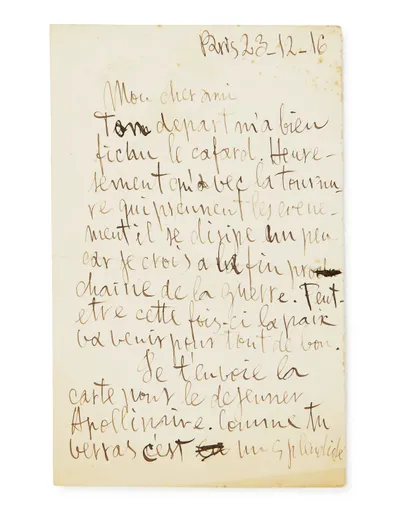 Paris 23-12-16
Mon cher ami
Ton depart m'a bien
fichu le cafard. Heure-
sement qu'avec la tournu-
re qui prennent les evene-
ment il se disipe un peu
car je crois a la fin pro-
chaine de la guerre. Peut-
etre cette fois-ci la paix
va venir pour tout de bon.
Je t'envoie la
carte pour le dejeuner
Apollinaire. Comme tu
verras c'est un splendide